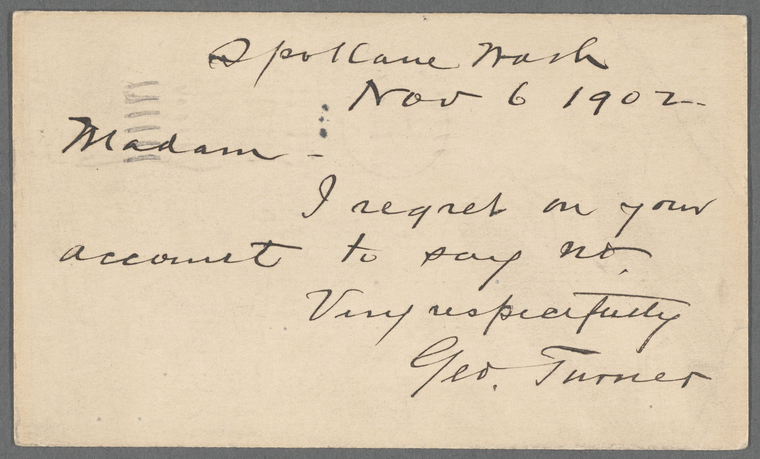 Spokane Wash
Nov 6 1902
Madam -
I regret on your
account to say no.
Very respectfully
Geo. Turner